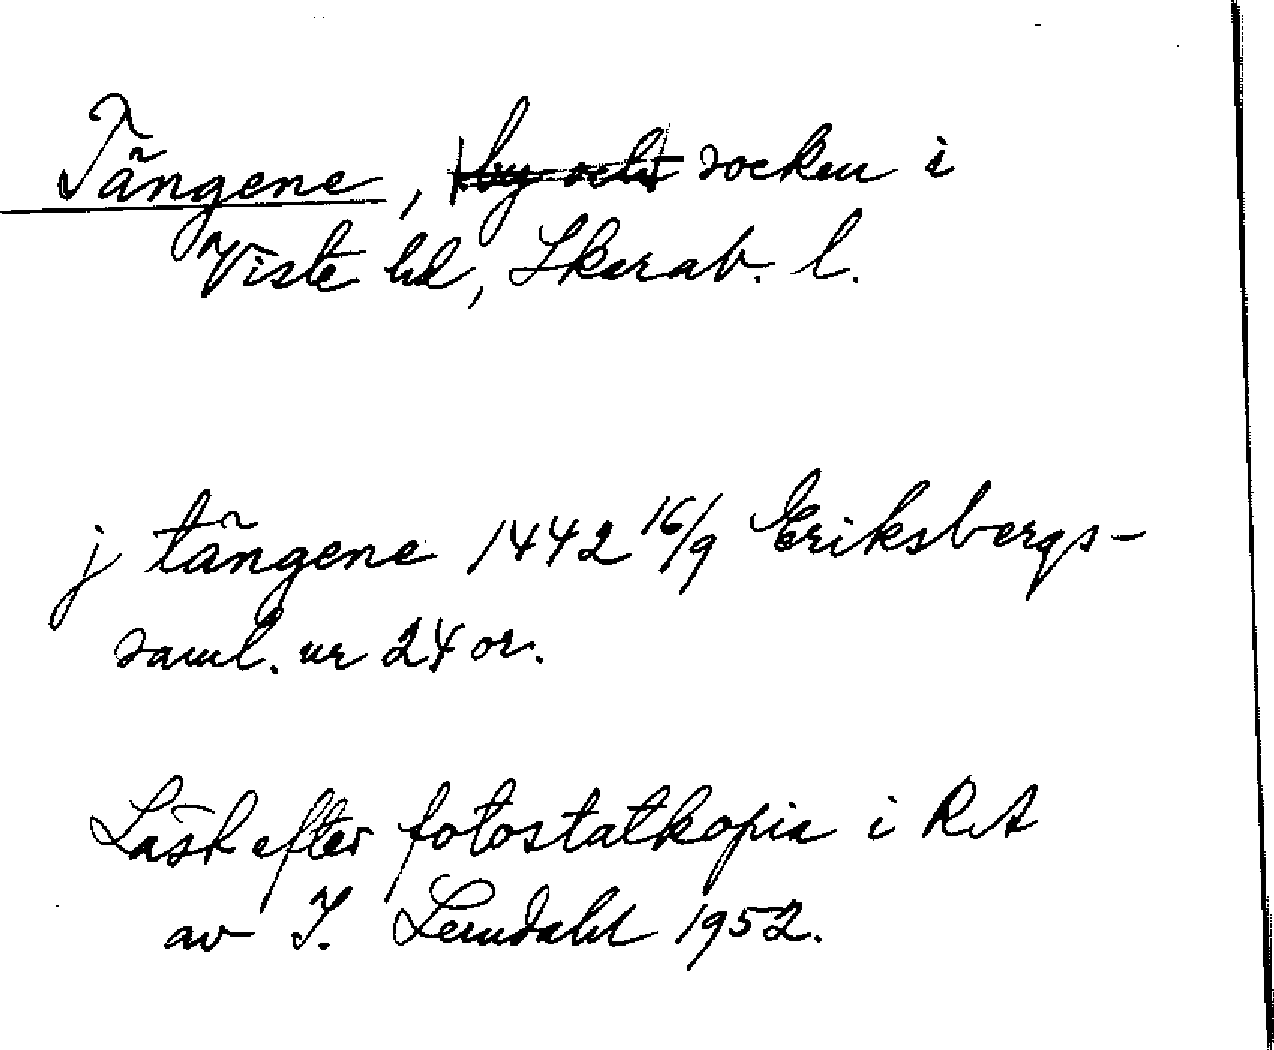 Tängene, ~~by och~~ socken i
Viste hd, Skarab. l.
j tängene 1442 16/9 Eriksbergs-
saml. nr 24 or.
Läst efter fotostatkopia i RA
av I. Lundahl 1952.